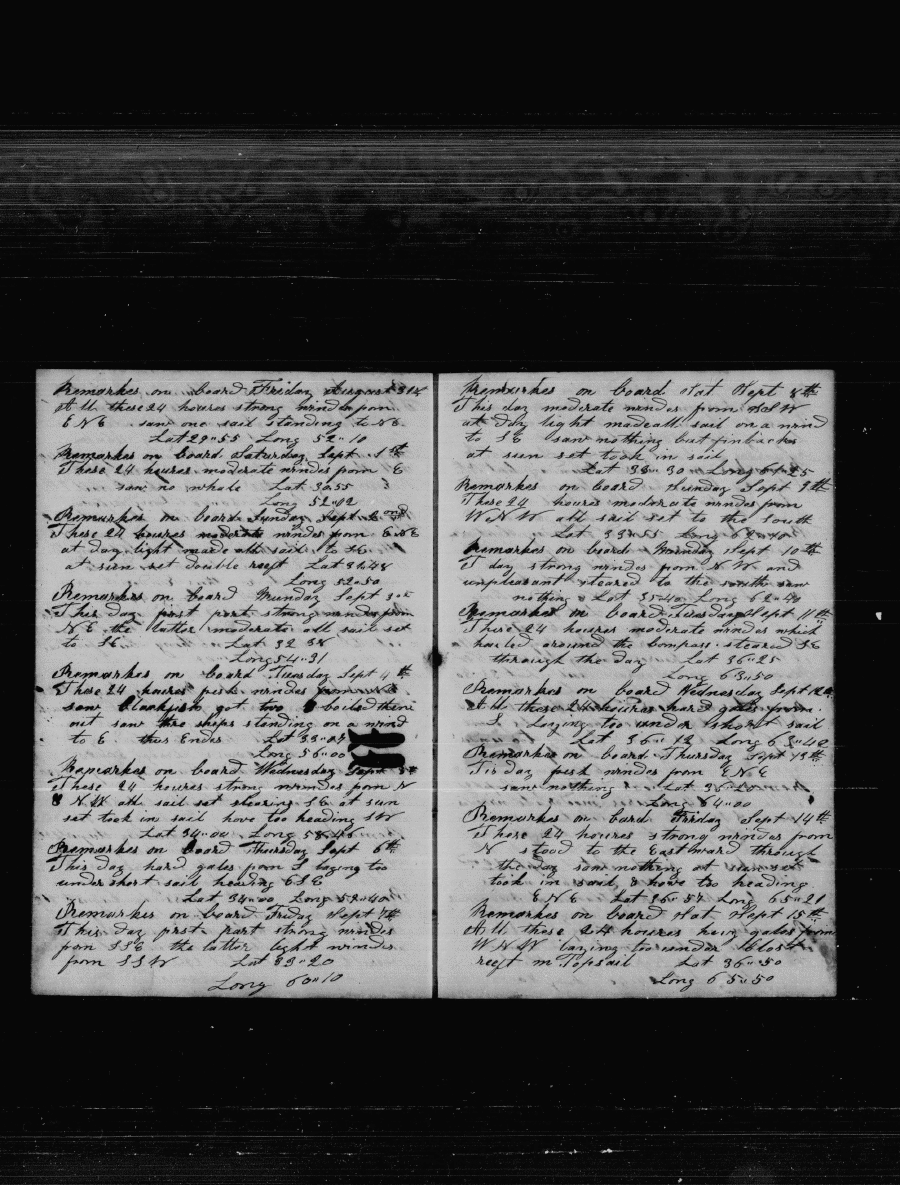 Remarkes on board Friday August 31st
All these 24 houres strong windes from
E N E saw one sail standing to N E
Lat 29"55 Long 52"10
Remarkes on board Saturday Sept 1st
These 24 houres moderate windes from E
saw no whale Lat 30"55
Long 52"02
Remarkes on board Sunday Sept 2ond
These 24 houres moderate windes from E N E
at day light made all sail to S E
at sun set double reeft Lat 31"48
Long 52"50
Remarkes on board Munday Sept 3
This day first part strong windes from
N E the latter moderate all sail set
to S E Lat 32
Long 54"31
Remarkes on board Tuesday Sept 4th
These 24 houres fresh windes from
saw blackfish got two boiled them
out saw thre ships standing on a wind
to E thus Endes Lat 33"
Long 56"00
Remarkes on board Wednesday Sept 5
These 24 houres strong windes from N
N W all sail set stearing S E at sun
set took in sail hove too heading S W
Lat 34"00 Long 58"
Remarkes on board Thursday Sept 6th
This day hard gales from S laying too
under short sail heading E S E
Lat 34"00 Long 59"40
Remarkes on board Friday Sept 7th
This day first part strong windes
from S S E the latter light windes
from S S W Lat 33"20
Long 60"10
Remarkes on board Sat Sept 8th
This day moderate windes from W
at Day light made all sail on a wind
to S E saw nothing but finbackes
at sun set took in sail
Lat 33"30 Long 61"25
Remarkes on board Sunday Sept 9th
These 24 houres moderate windes from
W N W all sail set to the South
Lat 33"55 Long 62"40
Remarkes on board Munday Sept 10th
T day strong windes from N W and
unpleasant steared to the south saw
nothing Lat 35"40 Long 62"40
Remarkes on board Tuesday Sept 11th
These 24 houres moderate windes which
hailed around the Compass steared S E
through the day Lat 36"25
Long 63"50
Remarkes on board Wednesday Sept 12th
All these 24 houres hard gales from
S Laying too under short sail
Lat 36"12 Long 63"40
Remarkes on board Thursday Sept 13th
Tis day fresh windes from E N E
saw nothing Lat 36"20
Long 64"00
Remarkes on bard Friday Sept 14th
These 24 houres strong windes from
N stood to the Eastward through
the day saw nothing at sun set
took in sail & hove too heading
E N E Lat 36"57 Long 65"21
Remarkes on board Sat Sept 15th
All these 24 houres hevy gales from
W N W laying too under close
reeft m Topsail Lat 36"50
Long 65"50